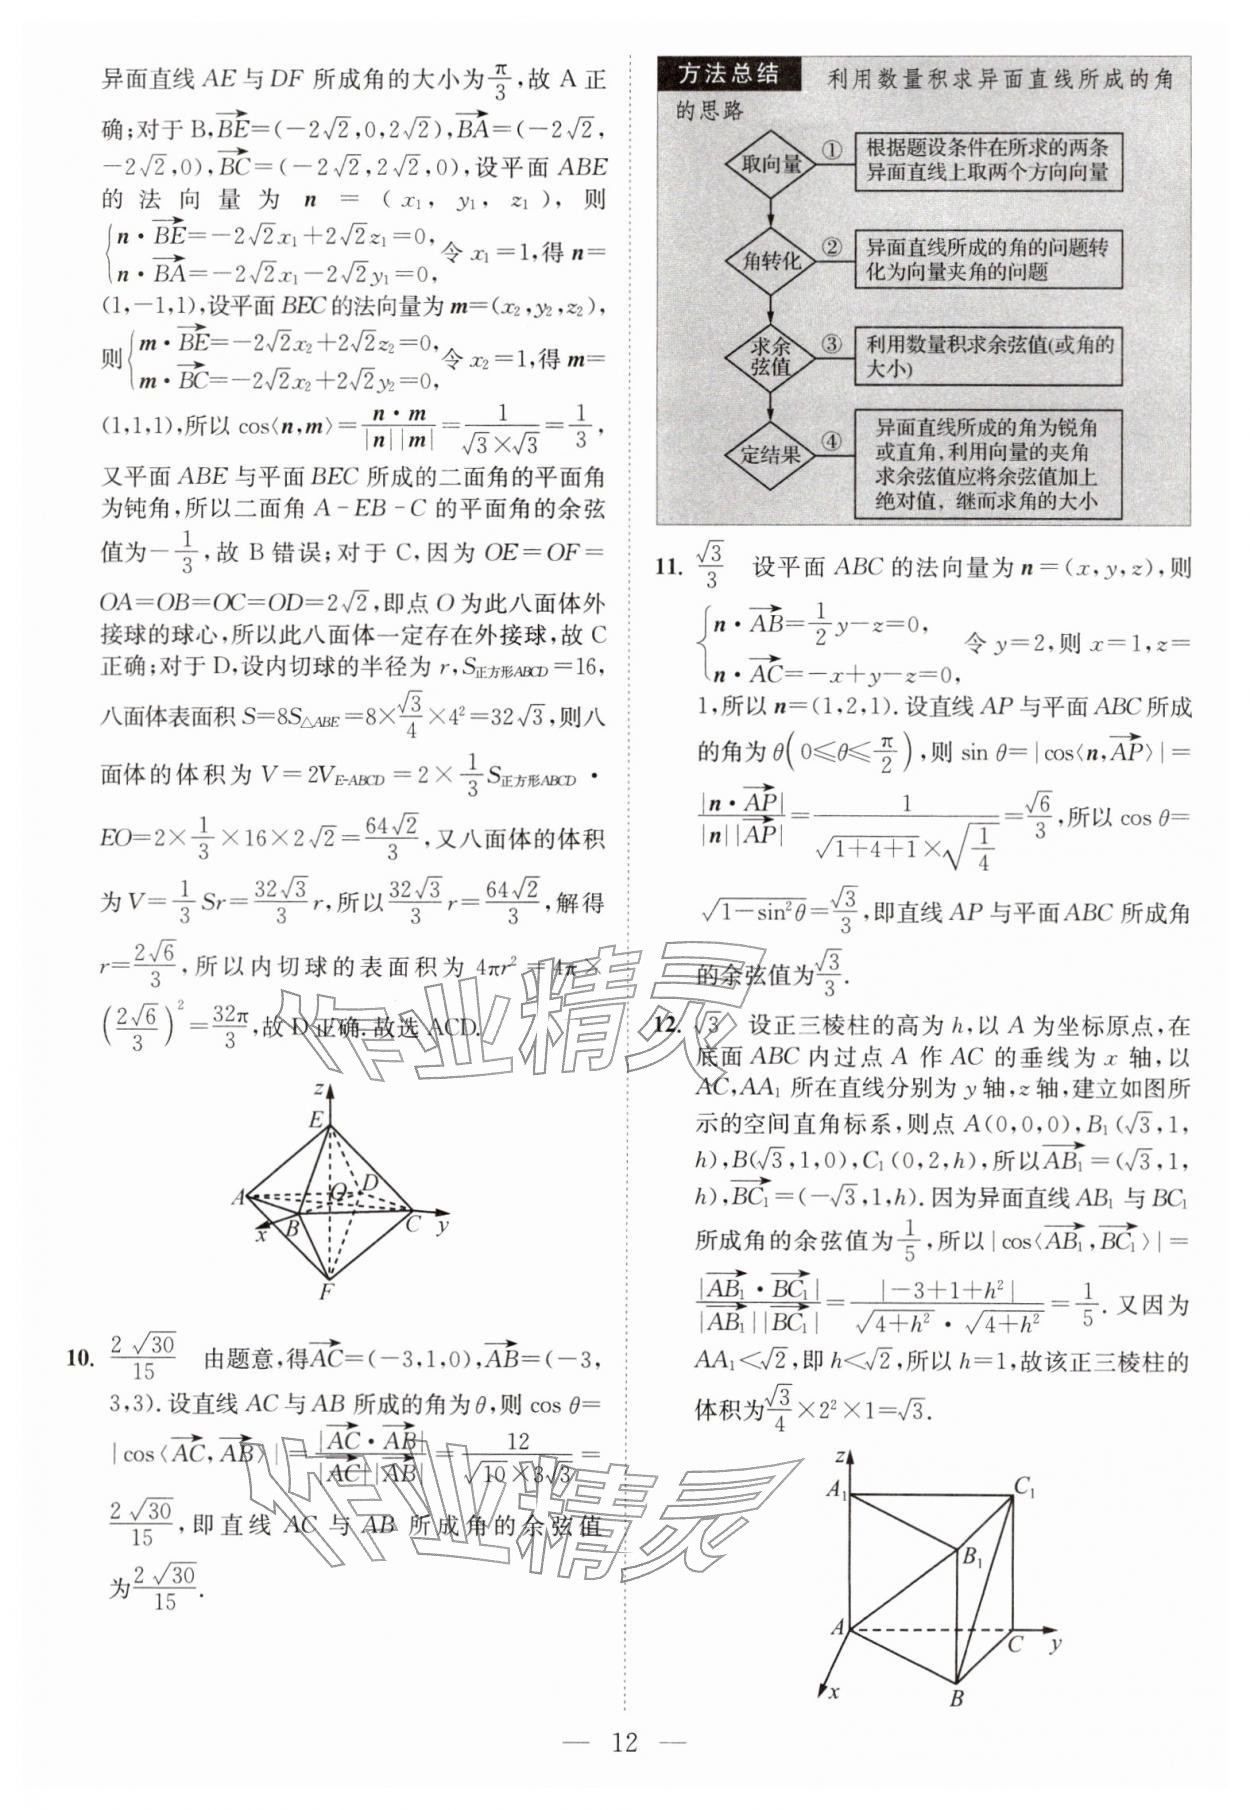 异面直线 AE 与 DF 所成角的大小为 π/3, 故 A 正
确;对于 B, \overrightarrow{BE}=(-2√2,0,2√2), \overrightarrow{BA}=(-2√2,
-2√2,0), \overrightarrow{BC}=(-2√2,2√2,0),设平面 ABE
的法向量为 n=(x₁, y₁, z₁), 则
{n·\overrightarrow{BE}=-2√2x₁+2√2z₁=0,
n·\overrightarrow{BA}=-2√2x₁-2√2y₁=0, 令 x₁=1,得 n=
(1,-1,1),设平面 BEC 的法向量为 m=(x₂,y₂,z₂),
则{m·\overrightarrow{BE}=-2√2x₂+2√2z₂=0,
m·\overrightarrow{BC}=-2√2x₂+2√2y₂=0, 令 x₂=1,得 m=
(1,1,1),所以 cos⟨n,m⟩=n·m/|n||m|=1/(√3×√3)=1/3,
又平面 ABE 与平面 BEC 所成的二面角的平面角
为钝角,所以二面角 A-EB-C 的平面角的余弦
值为-1/3,故 B 错误;对于 C,因为 OE=OF=
OA=OB=OC=OD=2√2,即点 O 为此八面体外
接球的球心,所以此八面体一定存在外接球,故 C
正确;对于 D,设内切球的半径为 r,S正方形ABCD=16,
八面体表面积 S=8S△ABE=8×√3/4×4²=32√3,则八
面体的体积为 V=2V_{E-ABCD}=2×1/3S正方形ABCD·
EO=2×1/3×16×2√2=64√2/3,又八面体的体积
为 V=1/3Sr=32√3/3 r,所以32√3/3 r=64√2/3,解得
r=2√6/3,所以内切球的表面积为 4πr²=4π×
(2√6/3)²=32π/3,故 D 正确.故选 ACD.
z
E
A
O
D
B
C
x
y
F
10. 2√30/15 由题意,得\overrightarrow{AC}=(-3,1,0),\overrightarrow{AB}=(-3,
3,3).设直线 AC 与 AB 所成的角为 θ,则 cos θ=
|cos⟨\overrightarrow{AC},\overrightarrow{AB}⟩|=|\overrightarrow{AC}·\overrightarrow{AB}|/|\overrightarrow{AC}||\overrightarrow{AB}|=12/(√10×3√3)=
2√30/15,即直线 AC 与 AB 所成角的余弦值
为2√30/15.
方法总结 利用数量积求异面直线所成的角
的思路
取向量 ① 根据题设条件在所求的两条
异面直线上取两个方向向量
角转化 ② 异面直线所成的角的问题转
化为向量夹角的问题
求余弦值 ③ 利用数量积求余弦值(或角的
大小)
定结果 ④ 异面直线所成的角为锐角
或直角,利用向量的夹角
求余弦值应将余弦值加上
绝对值,继而求角的大小
11. √3/3 设平面 ABC 的法向量为 n=(x,y,z),则
{n·\overrightarrow{AB}=1/2y-z=0,
n·\overrightarrow{AC}=-x+y-z=0, 令 y=2,则 x=1,z=
1,所以 n=(1,2,1).设直线 AP 与平面 ABC 所成
的角为 θ(0≤θ≤π/2),则 sin θ=|cos⟨n,\overrightarrow{AP}⟩|=
|n·\overrightarrow{AP}|/|n||\overrightarrow{AP}|=1/(√(1+4+1)×√(1/4))=√6/3,所以 cos θ=
√(1-sin²θ)=√3/3,即直线 AP 与平面 ABC 所成角
的余弦值为√3/3.
12. √3 设正三棱柱的高为 h,以 A 为坐标原点,在
底面 ABC 内过点 A 作 AC 的垂线为 x 轴,以
AC,AA₁ 所在直线分别为 y 轴,z 轴,建立如图所
示的空间直角标系,则点 A(0,0,0),B₁(√3,1,
h),B(√3,1,0),C₁(0,2,h),所以\overrightarrow{AB₁}=(√3,1,
h),\overrightarrow{BC₁}=(-√3,1,h).因为异面直线 AB₁ 与 BC₁
所成角的余弦值为1/5,所以|cos⟨\overrightarrow{AB₁},\overrightarrow{BC₁}⟩|=
|\overrightarrow{AB₁}·\overrightarrow{BC₁}|/|\overrightarrow{AB₁}||\overrightarrow{BC₁}|=|-3+1+h²|/(√(4+h²)·√(4+h²))=1/5.又因为
AA₁<√2,即 h<√2,所以 h=1,故该正三棱柱的
体积为√3/4×2²×1=√3.
z
A₁
C₁
B₁
A
C
y
x
B
作业精灵
作业精灵
— 12 —